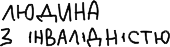 ЛЮДИНА
З ІНВАЛІДНІСТЮ